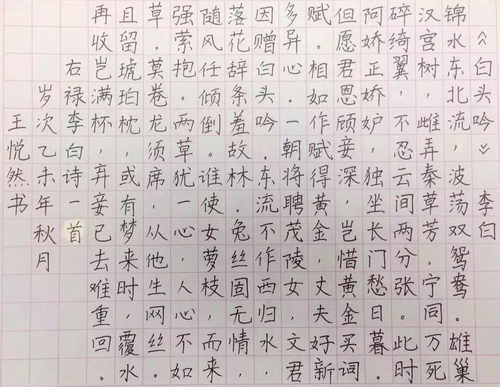 《白头吟》 李白
锦水东北流,波荡双鸳鸯。雄巢
汉宫树,雌弄秦草芳。宁同万死
碎绮翼,不忍云间两分张。此时
阿娇正娇妒,独坐长门愁日暮。
但愿君恩顾妾深,岂惜黄金买词
赋。相如作赋得黄金,丈夫好新
多异心。一朝将聘茂陵女,文君
因赠白头吟。东流不作西归水,
落花辞条羞故林。兔丝固无情,
随风任倾倒。谁使女萝枝,而来
强萦抱。两草犹一心,人心不如
草。莫卷龙须席,从他生网丝。
且留琥珀枕,或有梦来时。覆水
再收岂满杯,弃妾已去难重回。
右禄李白诗一首
岁次乙未年秋月
王悦然书